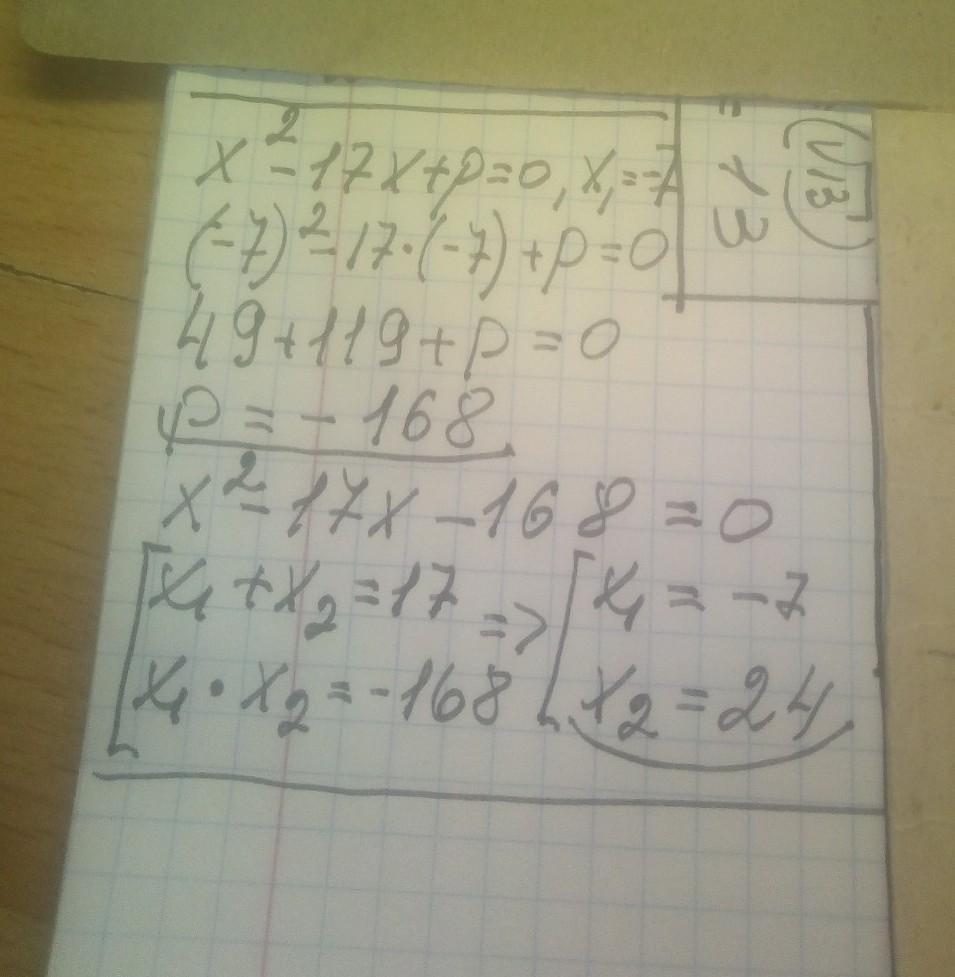 x² - 17x + p = 0, x₁ = -7
(-7)² - 17 · (-7) + p = 0
49 + 119 + p = 0
p = - 168
x² - 17x - 168 = 0
x₁ + x₂ = 17 => x₁ = -7
x₁ · x₂ = -168 x₂ = 24
(√13)
= 13